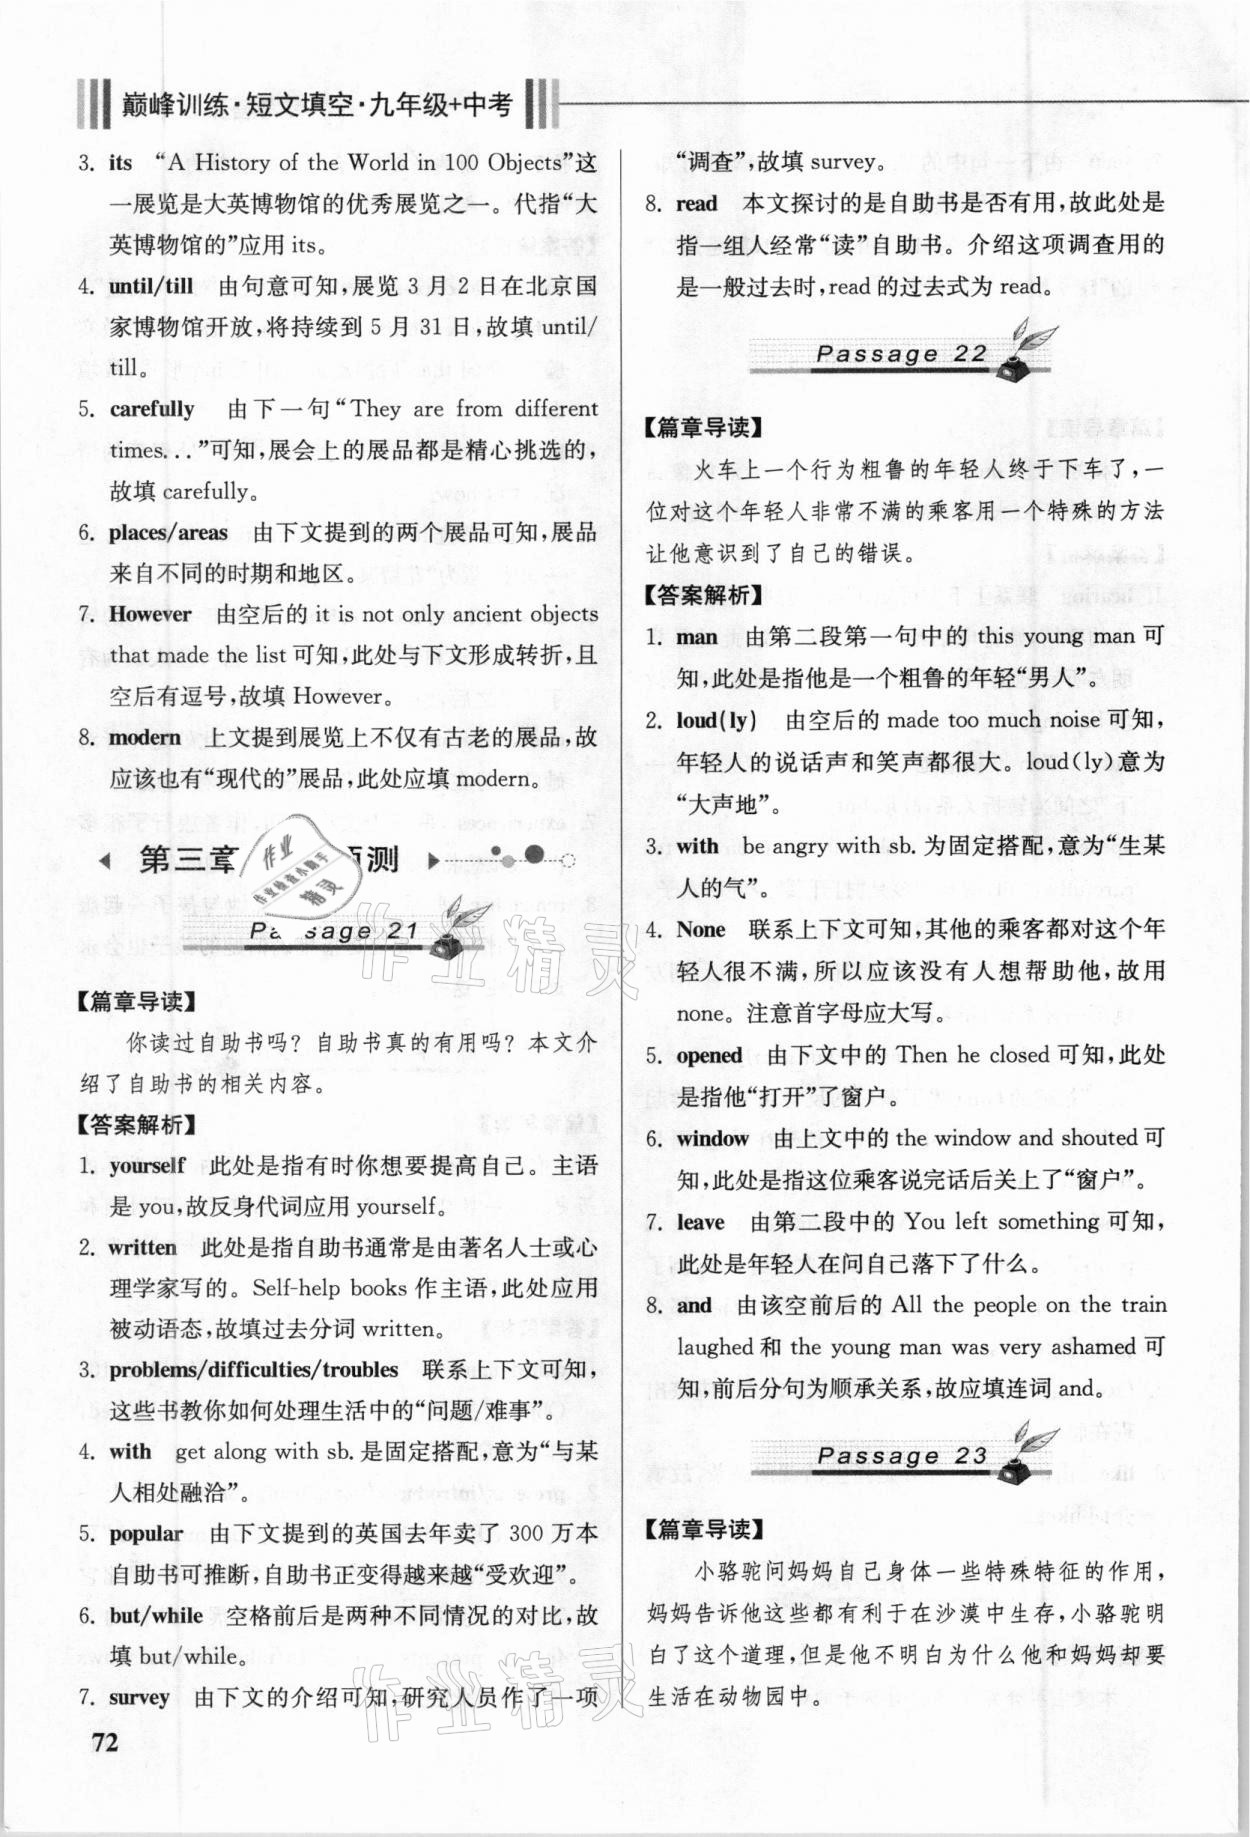 巅峰训练·短文填空·九年级+中考
3. its “A History of the World in 100 Objects”这
一展览是大英博物馆的优秀展览之一。代指“大
英博物馆的”应用 its。
4. until/till 由句意可知,展览 3 月 2 日在北京国
家博物馆开放,将持续到 5 月 31 日,故填 until/
till。
5. carefully 由下一句“They are from different
times...”可知,展会上的展品都是精心挑选的,
故填 carefully。
6. places/areas 由下文提到的两个展品可知,展品
来自不同的时期和地区。
7. However 由空后的 it is not only ancient objects
that made the list 可知,此处与下文形成转折,且
空后有逗号,故填 However。
8. modern 上文提到展览上不仅有古老的展品,故
应该也有“现代的”展品,此处应填 modern。
第三章 预测
Passage 21
【篇章导读】
你读过自助书吗？自助书真的有用吗？本文介
绍了自助书的相关内容。
【答案解析】
1. yourself 此处是指有时你想要提高自己。主语
是 you,故反身代词应用 yourself。
2. written 此处是指自助书通常是由著名人士或心
理学家写的。Self-help books 作主语,此处应用
被动语态,故填过去分词 written。
3. problems/difficulties/troubles 联系上下文可知,
这些书教你如何处理生活中的“问题/难事”。
4. with get along with sb. 是固定搭配,意为“与某
人相处融洽”。
5. popular 由下文提到的英国去年卖了 300 万本
自助书可推断,自助书正变得越来越“受欢迎”。
6. but/while 空格前后是两种不同情况的对比,故
填 but/while。
7. survey 由下文的介绍可知,研究人员作了一项
72
“调查”,故填 survey。
8. read 本文探讨的是自助书是否有用,故此处是
指一组人经常“读”自助书。介绍这项调查用的
是一般过去时,read 的过去式为 read。
Passage 22
【篇章导读】
火车上一个行为粗鲁的年轻人终于下车了,一
位对这个年轻人非常不满的乘客用一个特殊的方法
让他意识到了自己的错误。
【答案解析】
1. man 由第二段第一句中的 this young man 可
知,此处是指他是一个粗鲁的年轻“男人”。
2. loud(ly) 由空后的 made too much noise 可知,
年轻人的说话声和笑声都很大。loud(ly)意为
“大声地”。
3. with be angry with sb. 为固定搭配,意为“生某
人的气”。
4. None 联系上下文可知,其他的乘客都对这个年
轻人很不满,所以应该没有人想帮助他,故用
none。注意首字母应大写。
5. opened 由下文中的 Then he closed 可知,此处
是指他“打开”了窗户。
6. window 由上文中的 the window and shouted 可
知,此处是指这位乘客说完话后关上了“窗户”。
7. leave 由第二段中的 You left something 可知,
此处是年轻人在问自己落下了什么。
8. and 由该空前后的 All the people on the train
laughed 和 the young man was very ashamed 可
知,前后分句为顺承关系,故应填连词 and。
Passage 23
【篇章导读】
小骆驼问妈妈自己身体一些特殊特征的作用,
妈妈告诉他这些都有利于在沙漠中生存,小骆驼明
白了这个道理,但是他不明白为什么他和妈妈却要
生活在动物园中。
作业精灵
作业精灵
作业
作业检查小助手
精灵